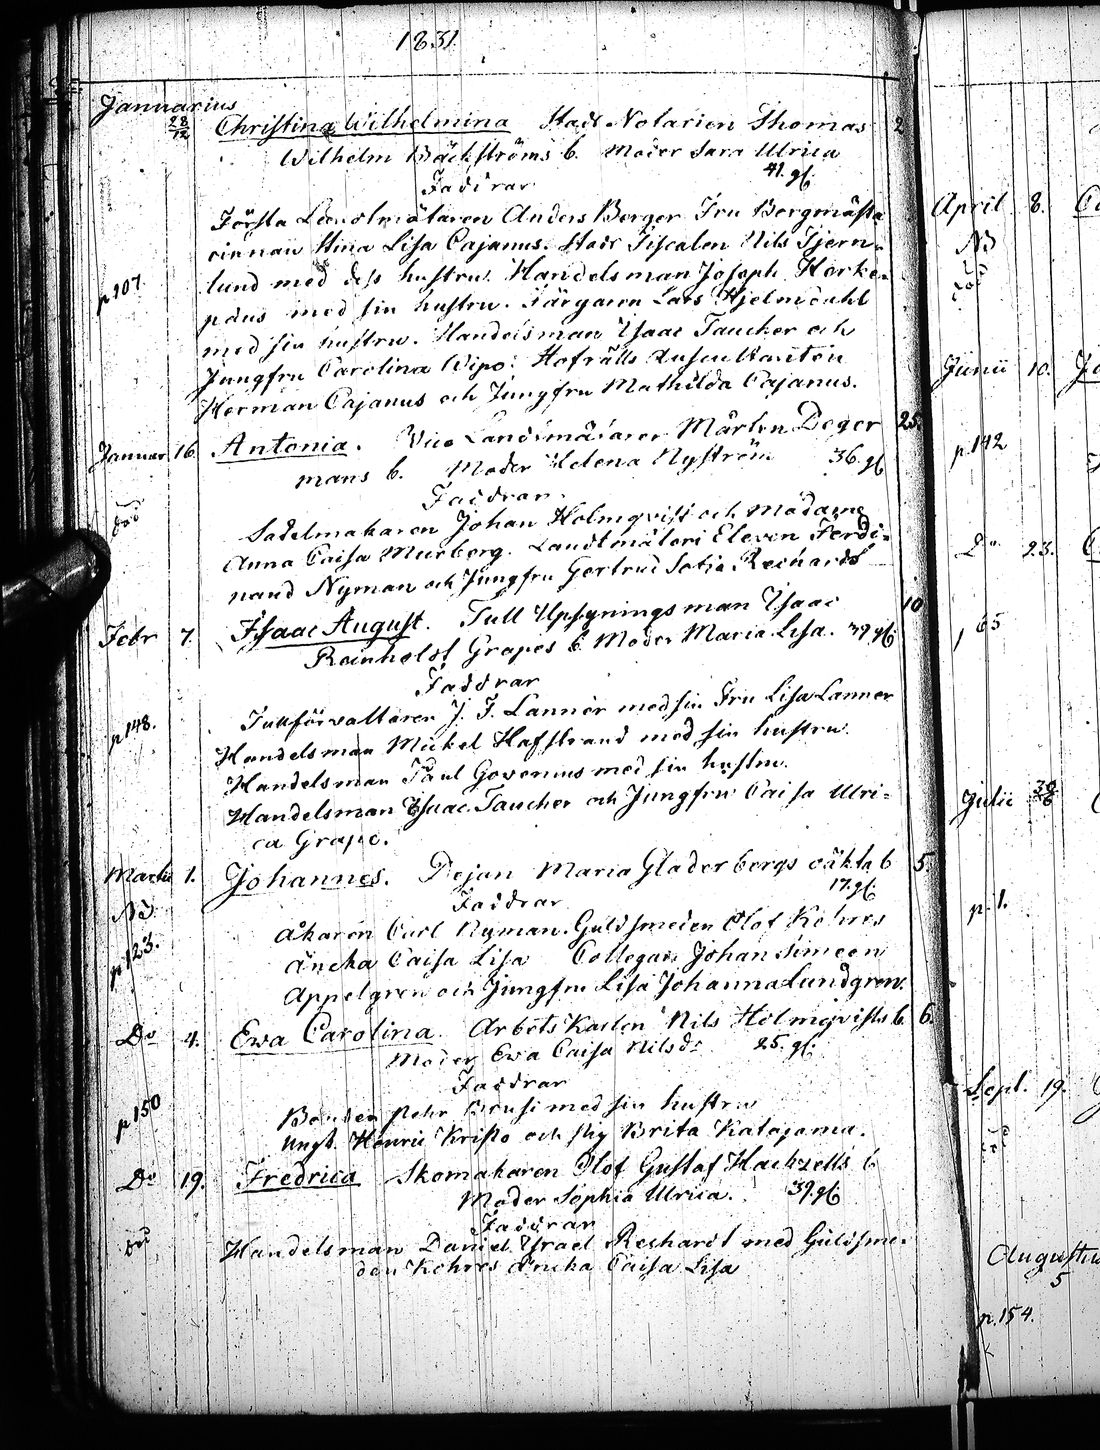 1831.
Januarius
28/12 Christina Wilhelmina Stads Notarien Thomas 2
Wilhelm Bäckströms b. Moder Sara Ulrica
41. gl.
Faddrar
Första Landtmätaren Anders Berger Fru Borgmästa
rinnan Stina Lisa Cajanus. Stads Fiscalen Nils Tjern-
lund med dess hustru. Handelsman Joseph Harke-
p 107.
päus med sin hustru. Färgaren Lars Hjelmdahl
med sin hustru. Handelsman Isaac Taucher och
Jungfru Carolina Wipo. Hofrätts Auscultanten
Herman Cajanus och Jungfru Mathilda Cajanus.
Januar 16. Antonia. Vice Landtmätaren Mårten Deger 25.
mans b. Moder Helena Nyström 36. gl
Faddrar.
död
Sadelmakaren Johan Holmqvist och Madame
Anna Caisa Murberg. Landtmäteri Eleven Ferdi-
nand Nyman och Jungfru Gertrud Sofia Rechardt
Febr 7. Isaac August. Tull Upsynings man Isaac 10
Reinholdt Grapes b Moder Maria Lisa. 39 gl.
Faddrar
p 148.
Tullförvaltaren J. F. Lannér med sin Fru Lisa Lanner
Handelsman Mickel Hafstrand med sin hustru.
Handelsman Paul Govenius med sin hustru.
Handelsman Isaac Taucher och Jungfru Caisa Ulri-
ca Grape.
Martii 1. Johannes. Pejan Maria Gladerbergs oäkta b 5.
17. gl.
Faddrar
NB
p 123.
Åkaren Carl Nyman. Guldsmeden Olof Kohres
Äncka Caisa Lisa Collegan Johan Simeon
Appelgren och Jungfru Lisa Johanna Lundgren.
Do 4. Ewa Carolina. Arbets Karlen Nils Holmqvists b. 6.
Moder Ewa Caisa Nilsdr 25. gl.
Faddrar
p 150
Bonden Petter Brusi med sin hustru
ungk. Henric Kristo och pig Brita Katajama.
Do 19. Fredrica Skomakaren Olof Gustaf Hackzells b
Moder Sophia Ulrica. 39. gl
Faddrar
död
Handelsman Daniel Israel Reshardt med Guldsme-
den Kohres Äncka Caisa Lisa
April 8.
NB
död
Junii 10.
p 142
Do 23.
p 65
Julii 30/6
p. 1.
Sept. 19.
död
Augusti
5
p. 154.